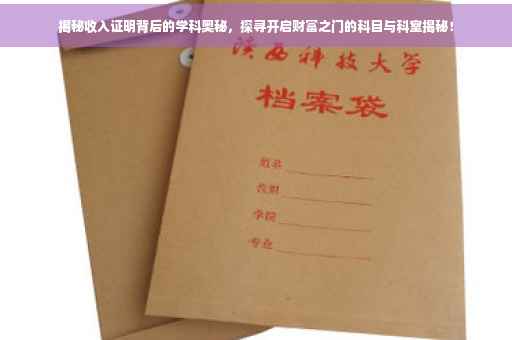 揭秘收入证明背后的学科奥秘，探寻开启财富之门的科目与科室揭秘！
陕西科技大学
档案袋
姓名
学院
专业